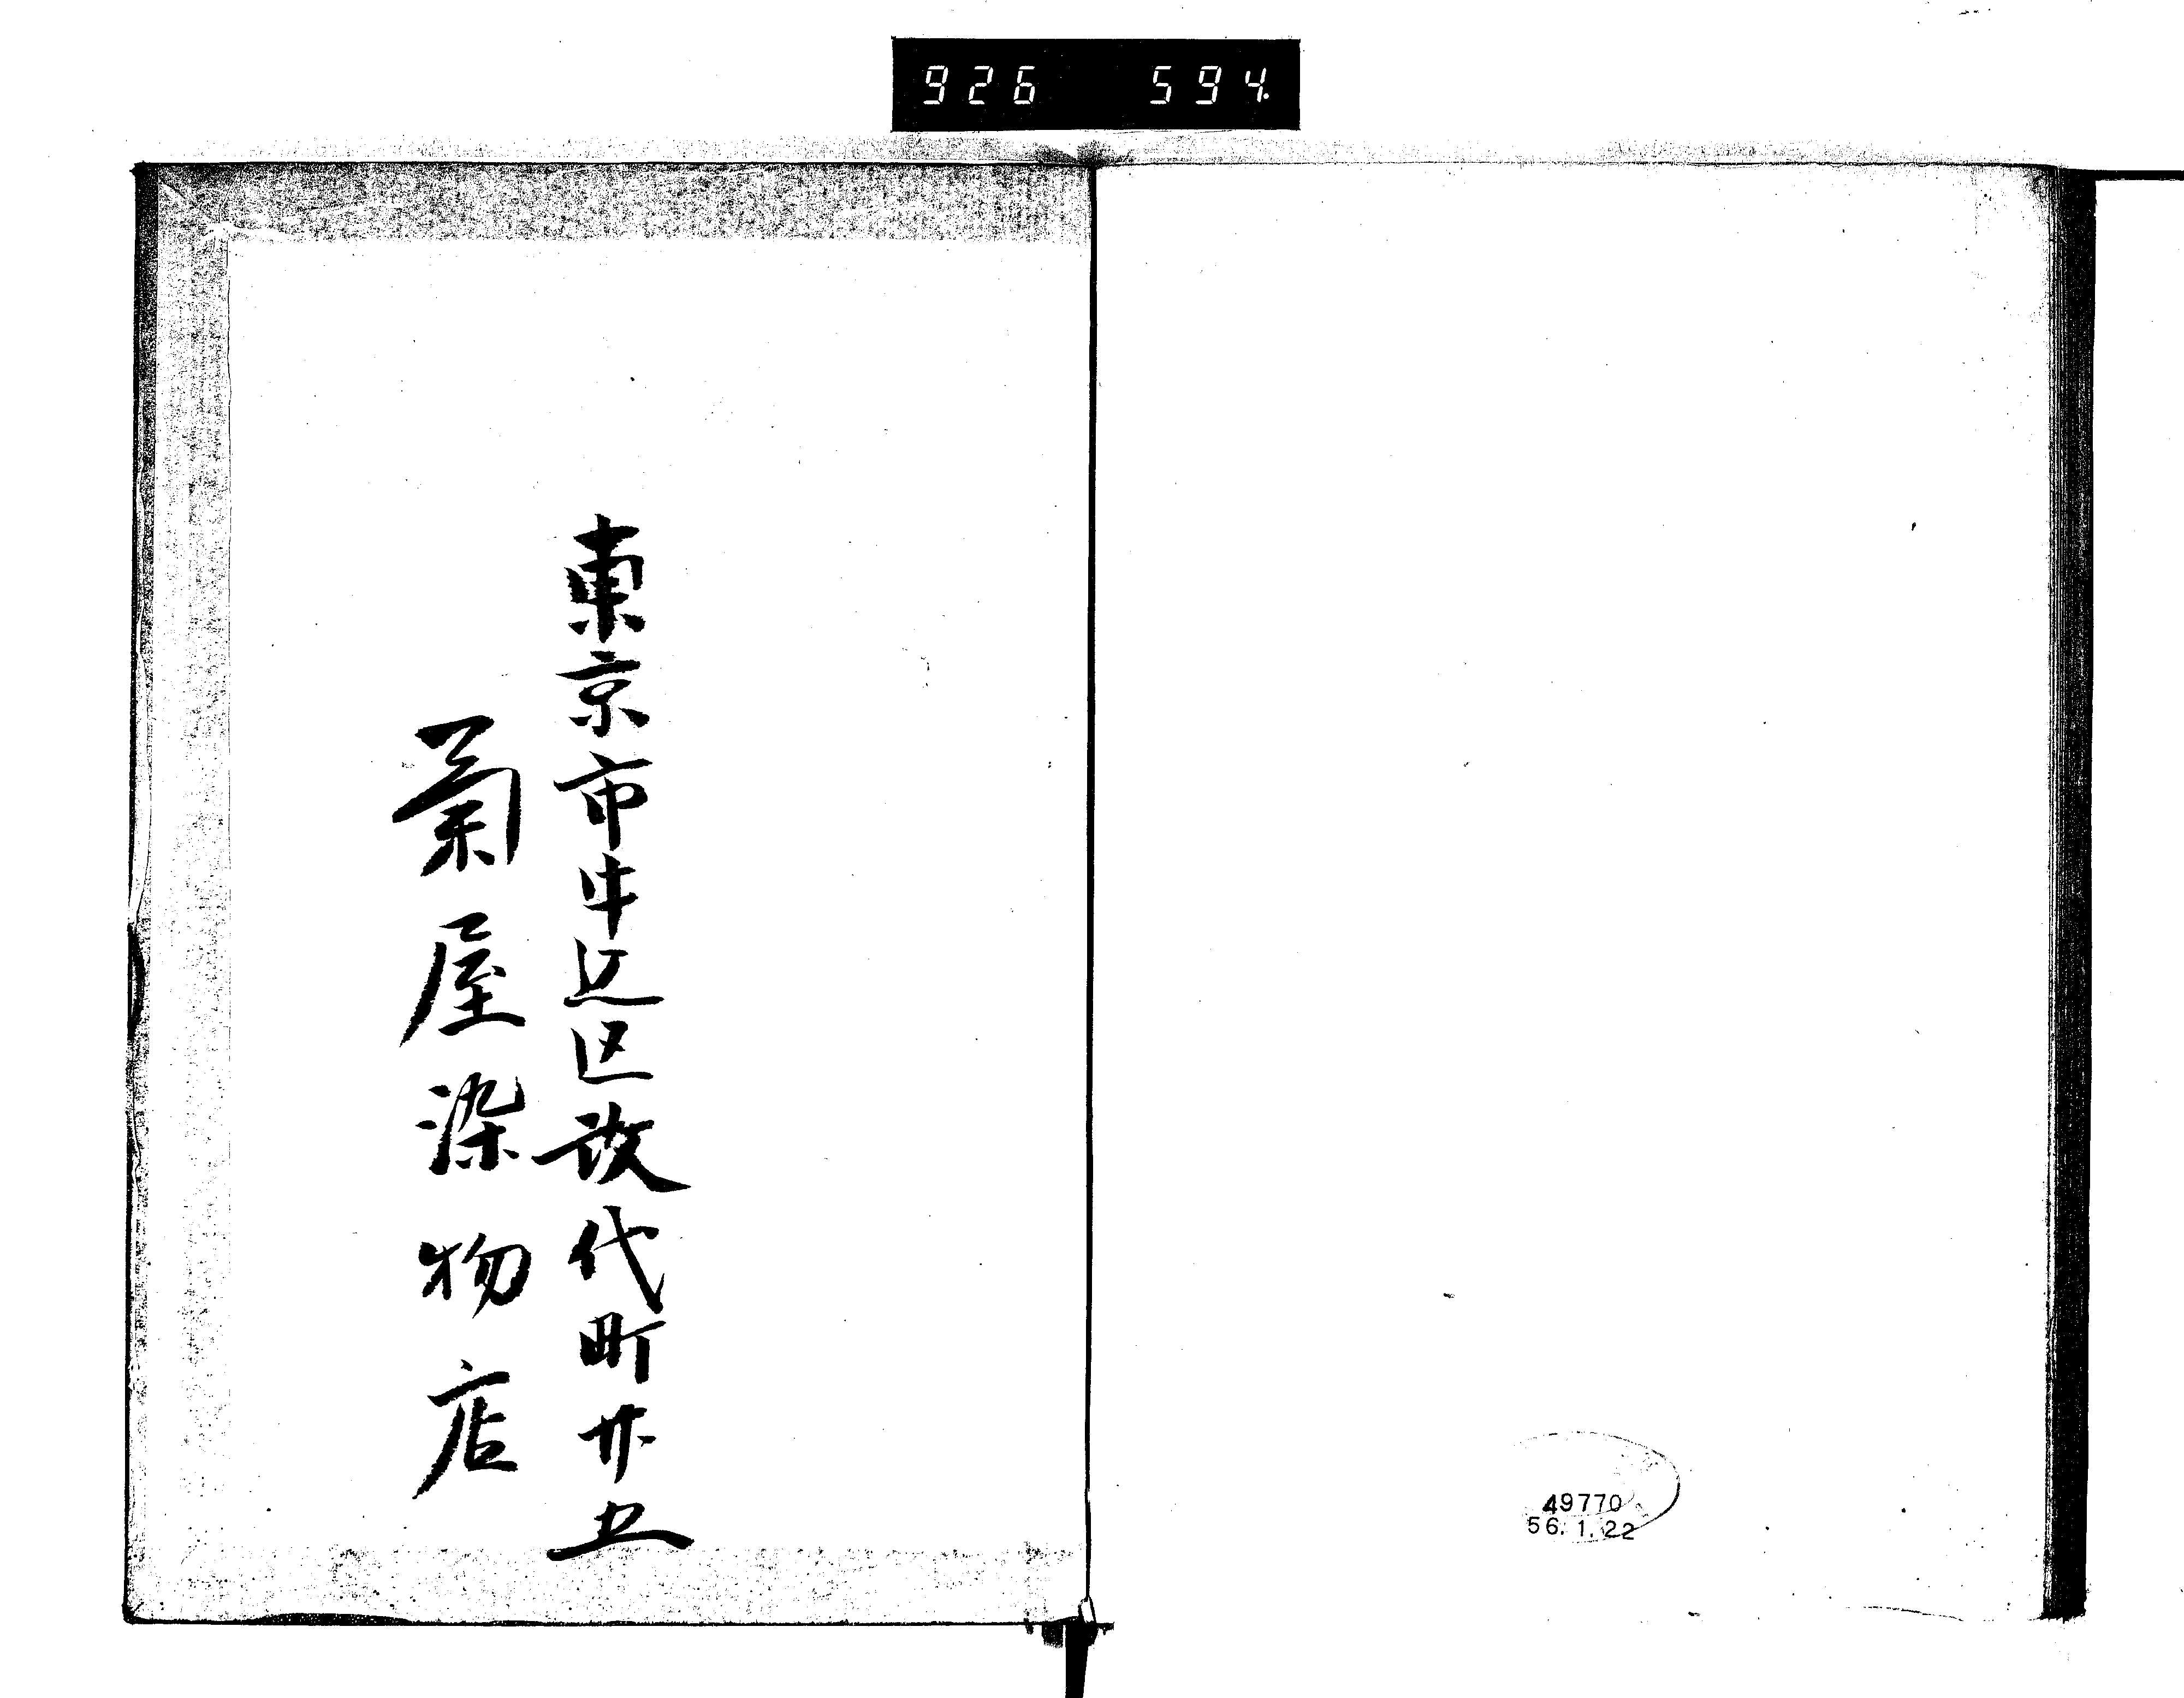 926 594.
東京市牛込区改代町廿五
菊屋染物店
49770
56.1.22